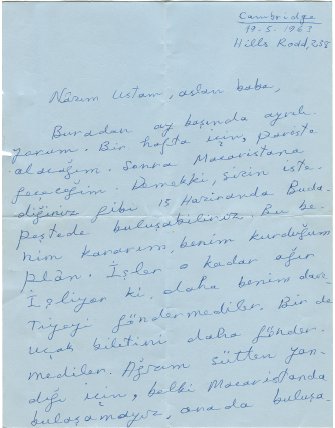 Cambridge
19.5.1963
Hills Rodd, 238
Nâzım Ustam, aslan baba,
Buradan ay başında ayrılı
yorum. Bir hafta için, pariste
olacağım. Sonra Macaristana
geçeceğim. Demekki, sizin iste
diğiniz gibi 15 Haziranda Buda-
peştede buluşabiliriz. Bu be-
nim kararım, benim kurduğum
plân. İşler o kadar ağır
işliyor ki, daha benim dav-
Tiyeyi göndermediler. Bir de
uçak biletini daha gönder.
mediler. Ağzım sütten yan
dığı için, belki Macaristanda
buluşamayız, ona da buluşa-